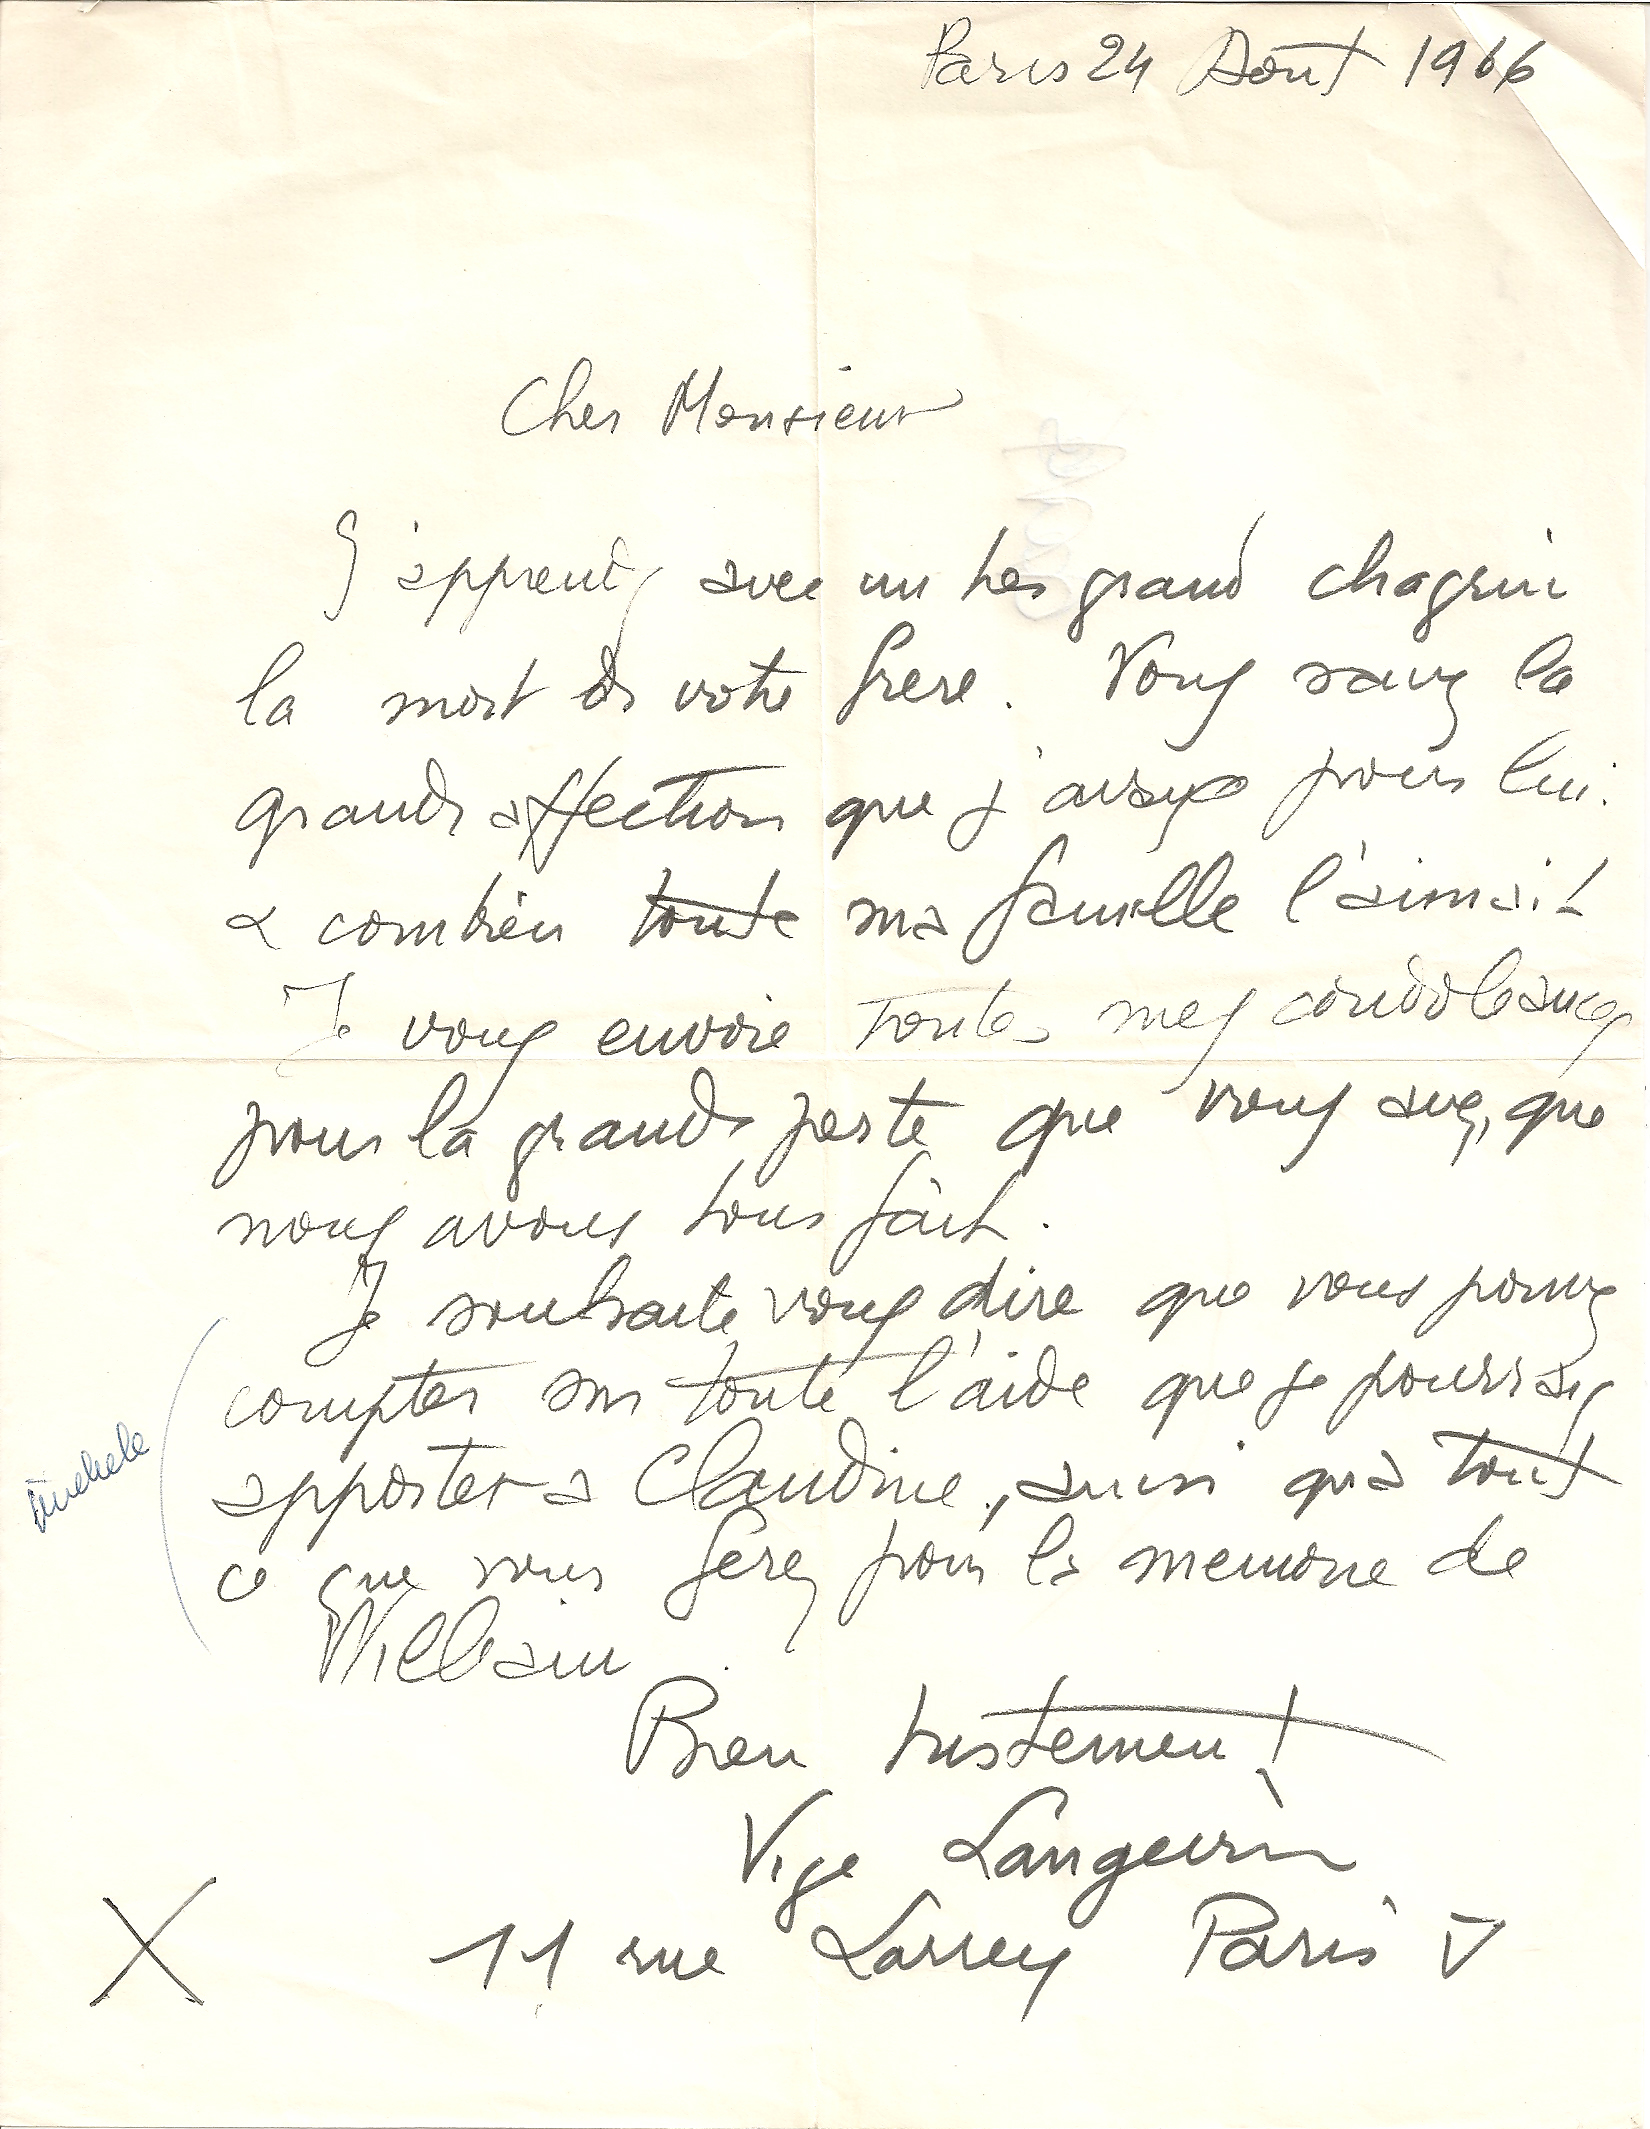 Paris 24 Août 1966
Cher Monsieur
J'apprends avec un tres grand chagrin
la mort de votre frere. Vous savez la
grande affection que j'avais pour lui.
& combien toute ma famille l'aimait
Je vous envoie toutes mes condoleances
pour la grande perte que vous avez, que
nous avons tous fait.
Je souhaite vous dire que vous pouvez
compter sur toute l'aide que je pourrais
apporter a Claudine, aussi qu'a tout
ce que vous ferez pour la memoire de
William
Bien tristement
Vige Langevin
11 rue Larrey Paris V
X